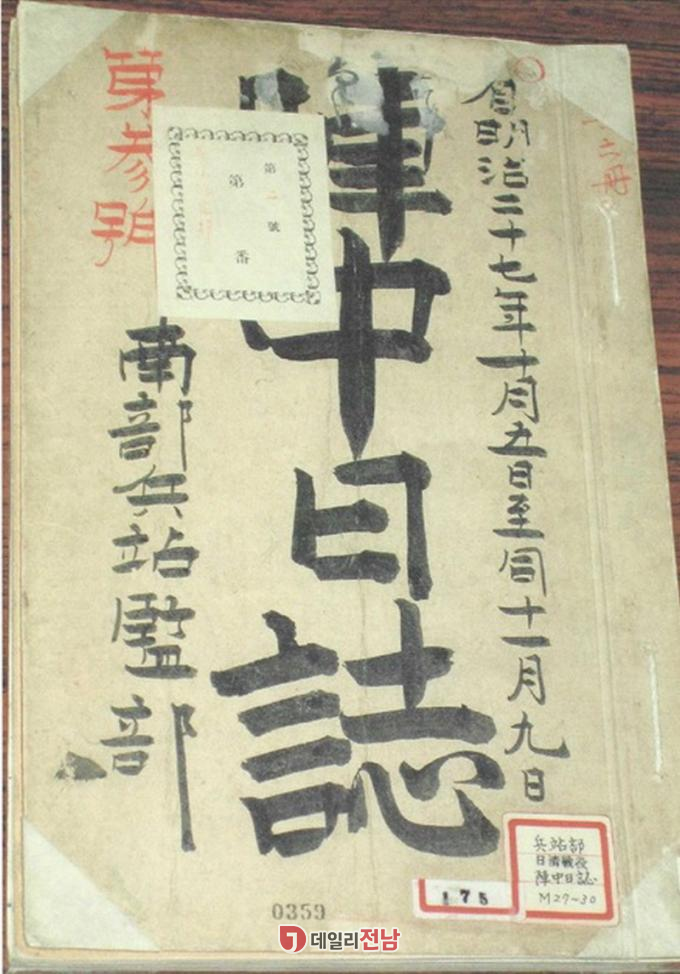 六冊
自明治二十七年十月五日至同十一月九日
陣中日誌
第参號
南部兵站監部
第 號
第 番
兵站部
日清戦役
陣中日誌
M27~30
175
0359
데일리전남